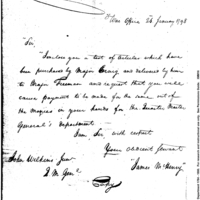 War Office 24 January 1798
Sir,
Enclosed you a list of articles which have
been purchased by Major Craig and delivered by him
to Major Freeman and request that you will
cause payment to be made for the same out of
the monies in your hands for the Quarter Master
General's Department
I am Sir with respect
Your obedient servant
John Wilkins Junr
James McHenry
Q M Genl
Copy